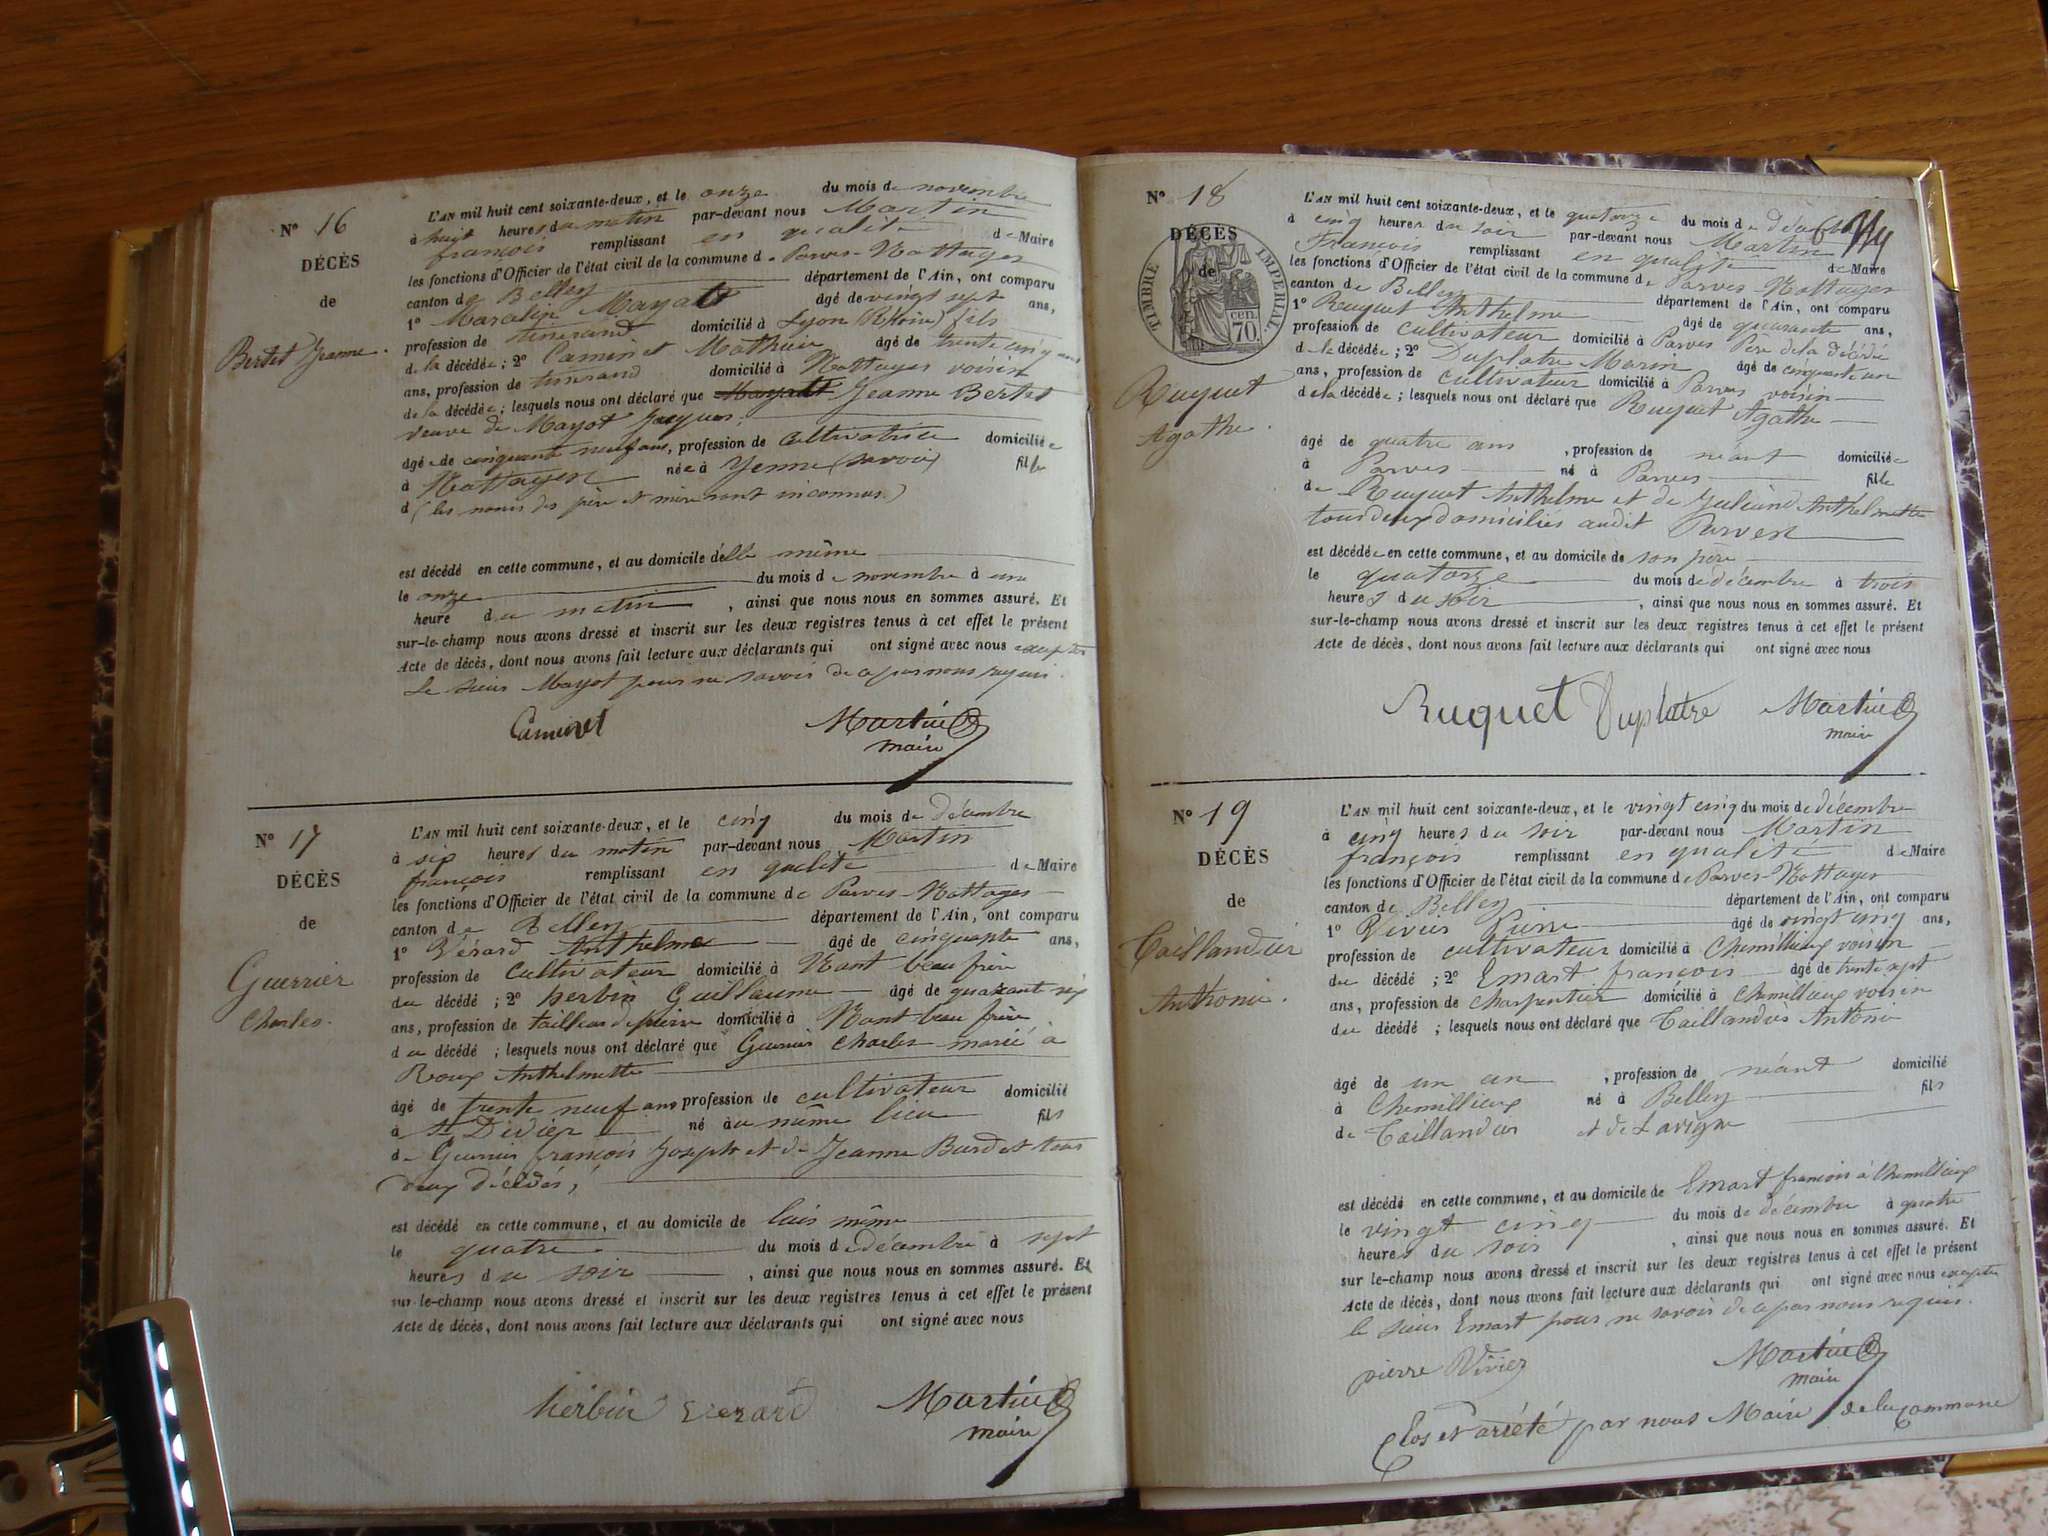 N° 16
DÉCÈS
de
Bertet Jeanne.
L'AN mil huit cent soixante-deux, et le onze du mois de novembre
à huit heures du matin par-devant nous Martin
françois remplissant en qualité de Maire
les fonctions d'Officier de l'état civil de la commune de Parves-Nattages
canton de Belley département de l'Ain, ont comparu
1° Marcelin Mayot âgé de vingt sept ans,
profession de tisserand domicilié à Lyon (Rhône) fils
de la décédée; 2° Caminet Mathieu âgé de trente cinq
ans, profession de tisserand domicilié à Nattages voisin
de la décédée; lesquels nous ont déclaré que Jeanne Bertet
veuve de Mayot Jacques,
âgée de cinquante neuf ans, profession de cultivatrice domiciliée
à Nattages née à Yenne (Savoie) fille
d (les noms des père et mère sont inconnus)
est décédé en cette commune, et au domicile d'elle même
le onze du mois de novembre à une
heure du matin, ainsi que nous nous en sommes assuré. Et
sur-le-champ nous avons dressé et inscrit sur les deux registres tenus à cet effet le présent
Acte de décès, dont nous avons fait lecture aux déclarants qui ont signé avec nous excepté
le sieur Mayot pour ne savoir de ce par nous requis.
Caminet Martin
maire
N° 17
DÉCÈS
de
Guerrier
Charles.
L'AN mil huit cent soixante-deux, et le cinq du mois de Décembre
à six heures du matin par-devant nous Martin
françois remplissant en qualité de Maire
les fonctions d'Officier de l'état civil de la commune de Parves-Nattages
canton de Belley département de l'Ain, ont comparu
1° Vérard Anthelme âgé de cinquante ans,
profession de cultivateur domicilié à Nant beau frère
du décédé; 2° herbin Guillaume âgé de quarante six
ans, profession de tailleur de pierre domicilié à Nant beau frère
du décédé; lesquels nous ont déclaré que Guerrier Charles marié à
Roux Anthelmette
âgé de trente neuf ans profession de cultivateur domicilié
à St Didier né au même lieu fils
de Guerrier françois Joseph et de Jeanne Burdet tous
deux décédés,
est décédé en cette commune, et au domicile de luis même
le quatre du mois de décembre à sept
heures du soir, ainsi que nous nous en sommes assuré. Et
sur-le-champ nous avons dressé et inscrit sur les deux registres tenus à cet effet le présent
Acte de décès, dont nous avons fait lecture aux déclarants qui ont signé avec nous
herbin Verard Martin
maire
N° 18
DÉCÈS
de
TIMBRE IMPÉRIAL
70 cen.
Ruquet
Agathe.
L'AN mil huit cent soixante-deux, et le quatorze du mois de décembre
à cinq heures du soir par-devant nous Martin
François remplissant en qualité de Maire
les fonctions d'Officier de l'état civil de la commune de Parves-Nattages
canton de Belley département de l'Ain, ont comparu
1° Ruquet Anthelme âgé de quarante ans,
profession de cultivateur domicilié à Parves Père de la décédée
de la décédée; 2° Duplatre Marin âgé de cinquante un
ans, profession de cultivateur domicilié à Parves voisin
de la décédée; lesquels nous ont déclaré que Ruquet Agathe
âgé de quatre ans, profession de néant domiciliée
à Parves né à Parves fille
de Ruquet Anthelme et de Anthelmette
tous deux domiciliés audit Parves
est décédée en cette commune, et au domicile de son père
le quatorze du mois de décembre à trois
heures du soir, ainsi que nous nous en sommes assuré. Et
sur-le-champ nous avons dressé et inscrit sur les deux registres tenus à cet effet le présent
Acte de décès, dont nous avons fait lecture aux déclarants qui ont signé avec nous
Ruquet Duplatre Martin
maire
N° 19
DÉCÈS
de
Taillandier
Anthonie.
L'AN mil huit cent soixante-deux, et le vingt cinq du mois de décembre
à cinq heures du soir par-devant nous Martin
françois remplissant en qualité de Maire
les fonctions d'Officier de l'état civil de la commune de Parves-Nattages
canton de Belley département de l'Ain, ont comparu
1° Vivier Pierre âgé de vingt cinq ans,
profession de cultivateur domicilié à Chemillieux voisin
du décédé; 2° Emart françois âgé de trente sept
ans, profession de charpentier domicilié à Chemillieux voisin
du décédé; lesquels nous ont déclaré que Taillandier Antoine
âgé de un an, profession de néant domicilié
à Chemillieux né à Belley fils
de Taillandier et de Lavigne
est décédé en cette commune, et au domicile de Emart françois à Chemillieux
le vingt cinq du mois de décembre à quatre
heures du soir, ainsi que nous nous en sommes assuré. Et
sur le-champ nous avons dressé et inscrit sur les deux registres tenus à cet effet le présent
Acte de décès, dont nous avons fait lecture aux déclarants qui ont signé avec nous excepté
le sieur Emart pour ne savoir de ce par nous requis.
pierre Vivier Martin
maire
Clos et arrêté par nous Maire de la Commune